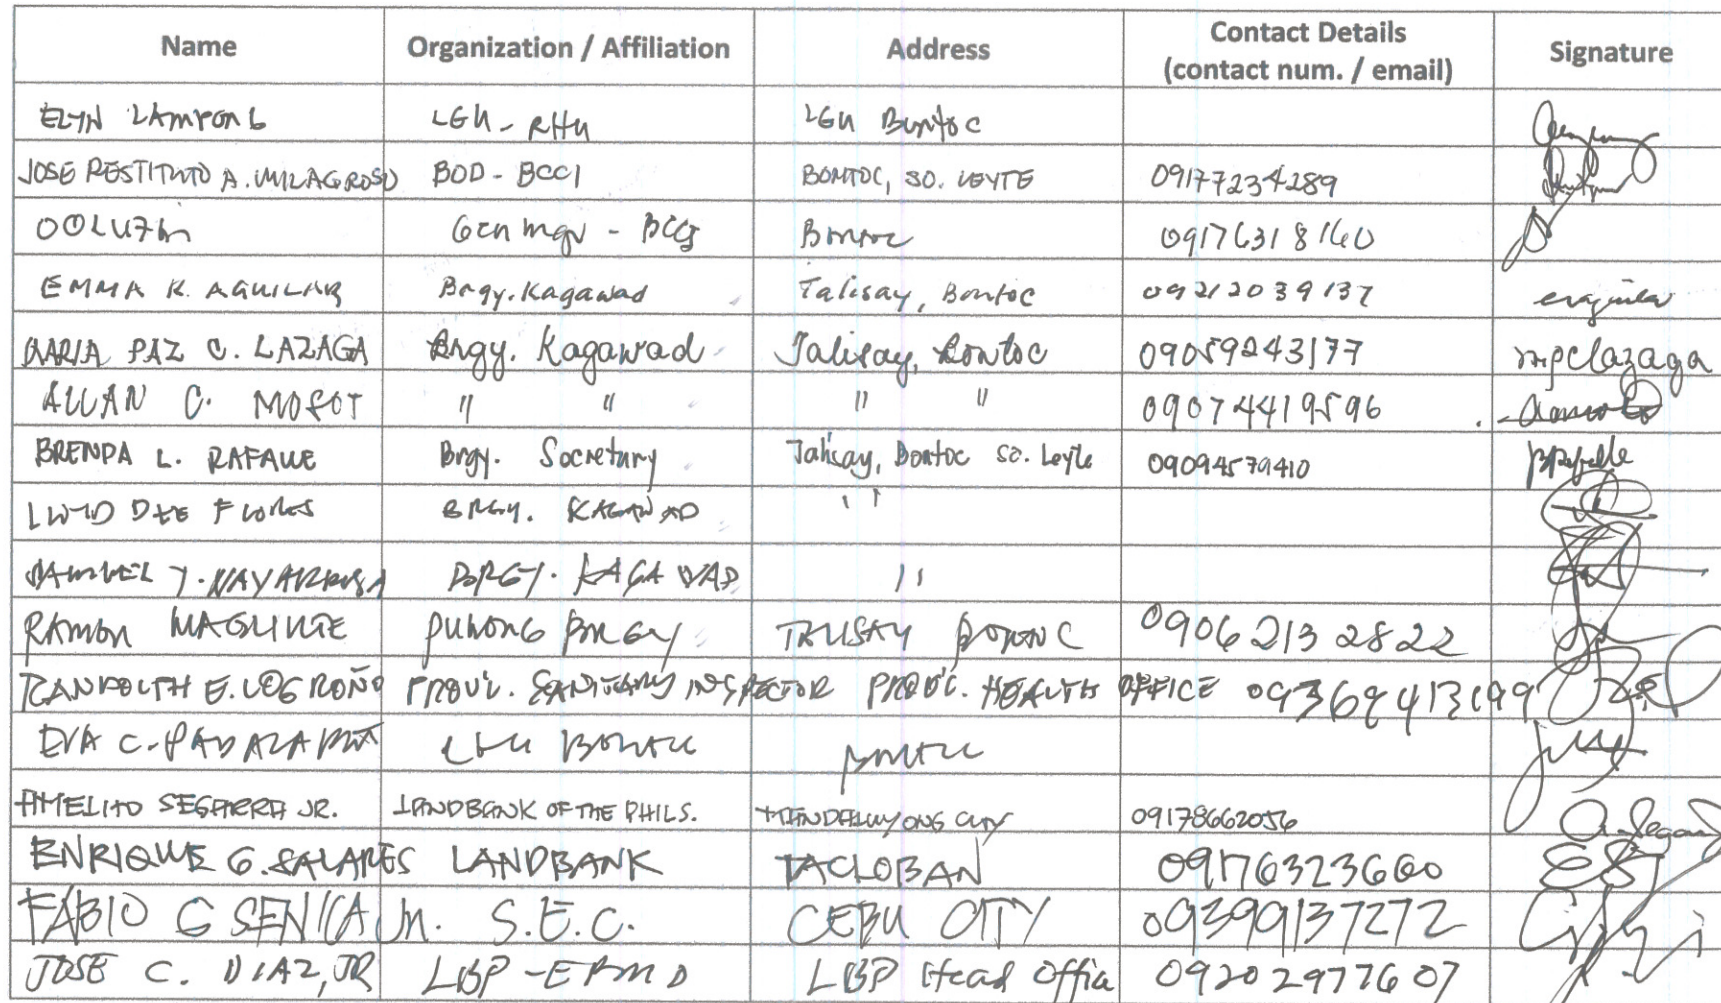 Name Organization / Affiliation Address Contact Details (contact num. / email) Signature
ELYN LAMPONG LGU - RHU LGU Bontoc
JOSE RESTITUTO A. MILAGROSO BOD - BCCI BONTOC, SO. LEYTE 09177234289
Gen mgr - BCCI Bontoc 09176318160
EMMA K. AGUILAR Brgy. Kagawad Talisay, Bontoc 09212039137
MARIA PAZ C. LAZAGA Brgy. Kagawad Talisay, Bontoc 09059243177 mpclazaga
ALLAN C. MOSOT " " " " 09074419596
BRENDA L. RAFALLE Brgy. Secretary Talisay, Bontoc So. Leyte 09094579410
DEE FLORES BRGY. KAGAWAD " "
BRGY. KAGAWAD " "
RAMON MAGLINTE PUNONG BRGY TALISAY BONTOC 09062132822
RANDOLPH E. LOGROÑO PROV'L. SANITARY INSPECTOR PROV'L. HEALTH OFFICE 09369413199
EVA C. LGU BONTOC BONTOC
AMELITO SEGARRA JR. LANDBANK OF THE PHILS. MANDALUYONG CITY 09178662056
ENRIQUE G. SALARES LANDBANK TACLOBAN 09176323660
FABIO G SENICA Jr. S.E.C. CEBU CITY 09399137272
JOSE C. DIAZ, JR LBP - EPMD LBP Head Office 09202977607